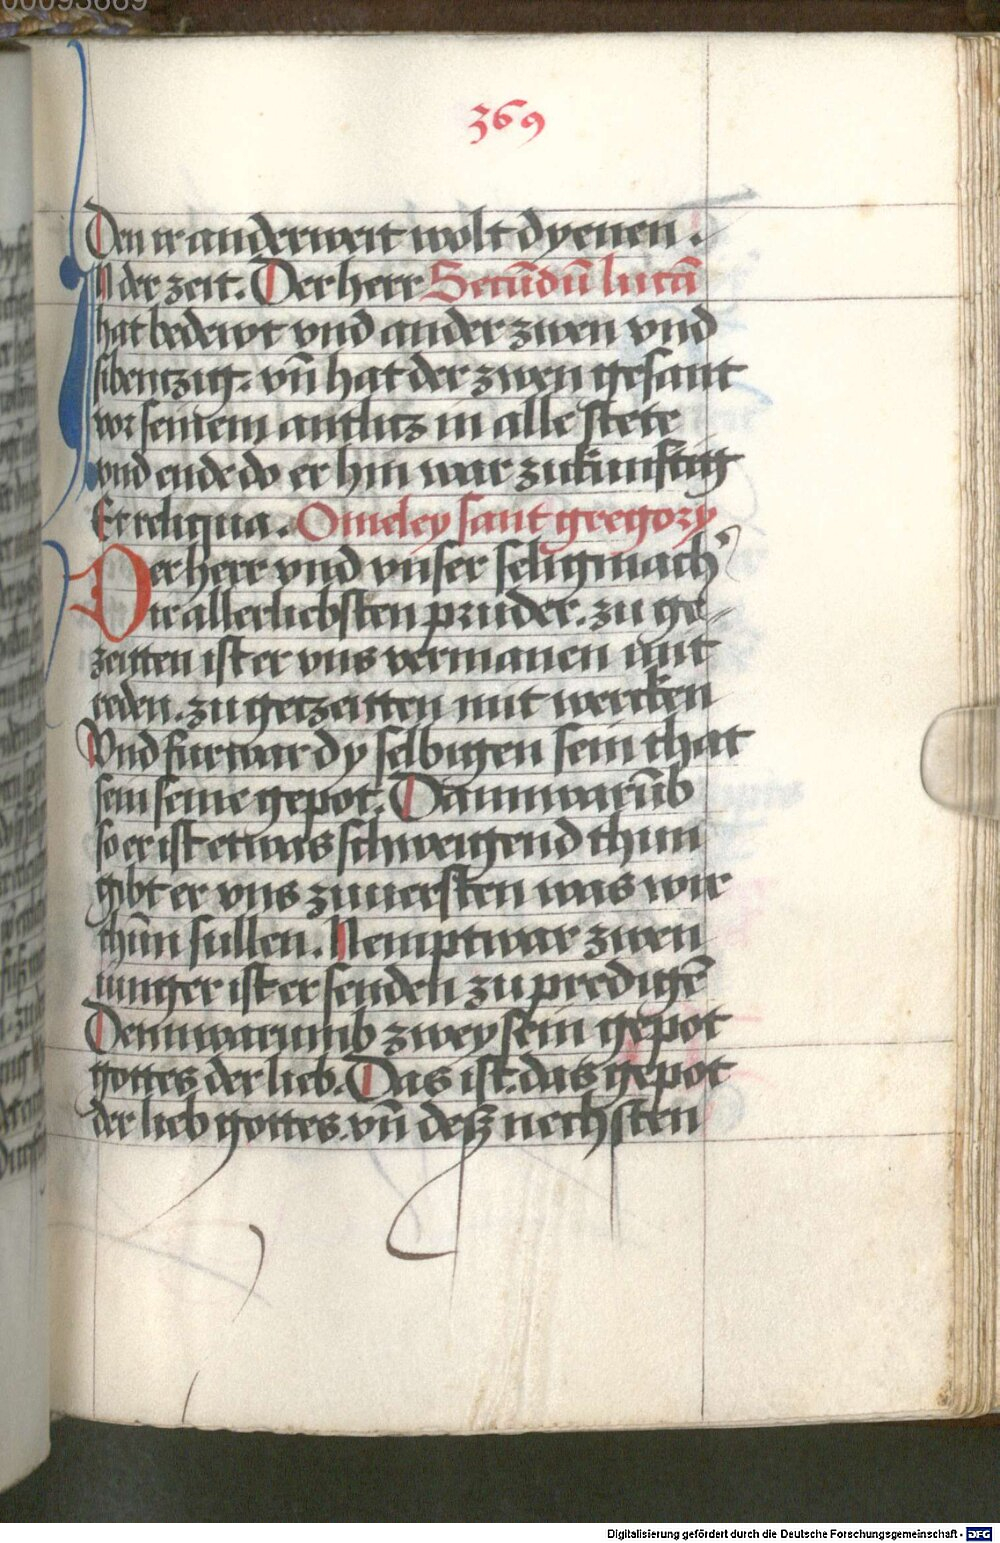 00093669
369
Den ir anderweit wolt dyenen.
In der zeit. Der herr Secūdū lucā
hat bedewt vnd ander zwen vnd
sibentzig. vn̄ hat der zwen gesant
vor seinem antlitz in alle stete
vnd ende do er hin war zukunftig
Et reliqua. Omeley sant gregory
Der herr vnd vnser seligmach'
ir allerliebsten pruder. zu ge-
zeitten ist er vns vermanen mit
reden. zu getzeitten mit wercken
Vnd furwar dy selbigen sein that
sein seine gepot. Dann warūb
so er ist etwas schweigend thun
gibt er vns zuuersten was wir
thūn sullen. Nempt war zwen
iunger ist er senden zu predigē
Denn warumb zwey sein gepot
gottes der lieb. Das ist. das gepot
der lieb gottes. vn̄ desz nechsten
Digitalisierung gefördert durch die Deutsche Forschungsgemeinschaft - DFG